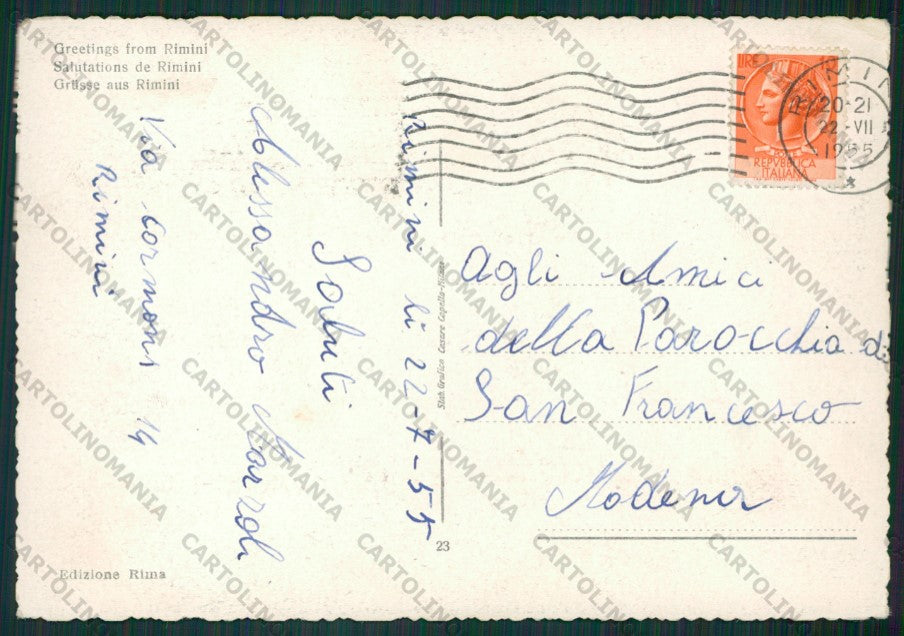 Greetings from Rimini
Salutations de Rimini
Grüsse aus Rimini
Rimini li 22-7-55
Saluti
Alessandro Marzoli
Via Cormons 14
Rimini
Edizione Rima
23
Stab. Grafico Cesare Capello-Milano
LIRE
POSTE
REPVBBLICA
ITALIANA
RIMINI
20-21
22-VII
1955
Agli Amici
della Parocchia di
San Francesco
Modena
CARTOLINOMANIA